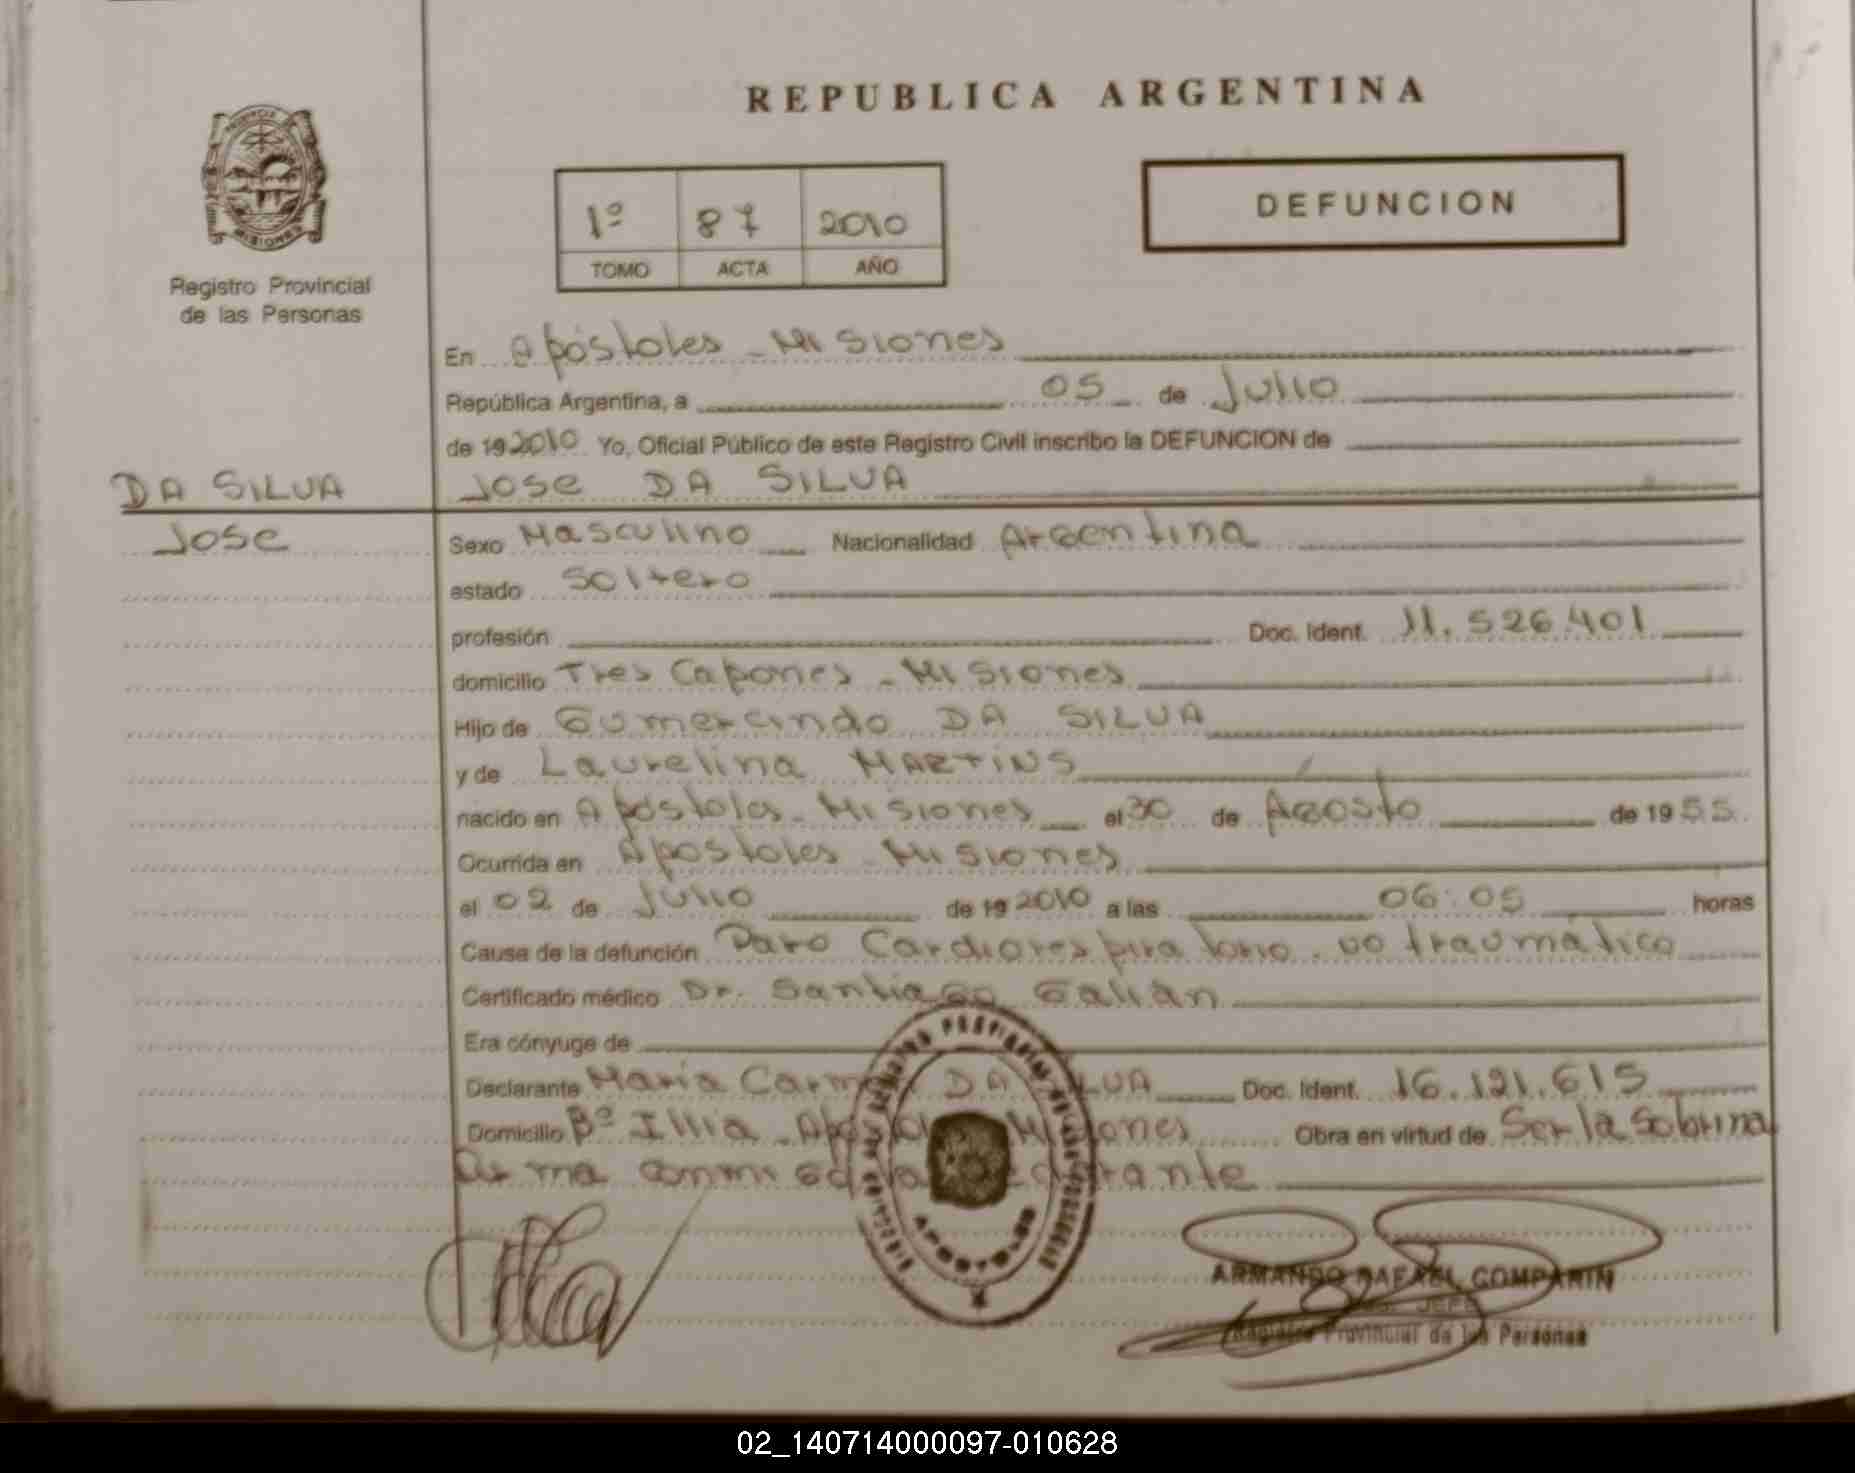 REPUBLICA ARGENTINA
PROVINCIA DE
MISIONES
Registro Provincial
de las Personas
1º 87 2010
TOMO ACTA AÑO
DEFUNCION
En Apóstoles - Misiones
República Argentina, a 05 de Julio
de 19 2010 Yo, Oficial Público de este Registro Civil inscribo la DEFUNCION de
DA SILVA
Jose
Jose DA SILVA
Sexo Masculino Nacionalidad Argentina
estado Soltero
profesión Doc. Ident. 11.526.401
domicilio Tres Capones - Misiones
Hijo de Gumercindo DA SILVA
y de Laurelina MARTINS
nacido en Apóstoles - Misiones el 30 de Agosto de 1955
Ocurrida en Apóstoles - Misiones
el 02 de Julio de 19 2010 a las 06:05 horas
Causa de la defunción Paro Cardiorespiratorio, no traumático
Certificado médico Dr. Santiago Galián
Era cónyuge de
Declarante María Carmen DA SILVA Doc. Ident. 16.121.615
Domicilio Bº Illia - Apóstoles Misiones Obra en virtud de Ser la Sobrina
firma conmigo la declarante
APOSTOLES
ARMANDO RAFAEL COMPARIN
JEFE
Registro Provincial de las Personas
02_140714000097-010628